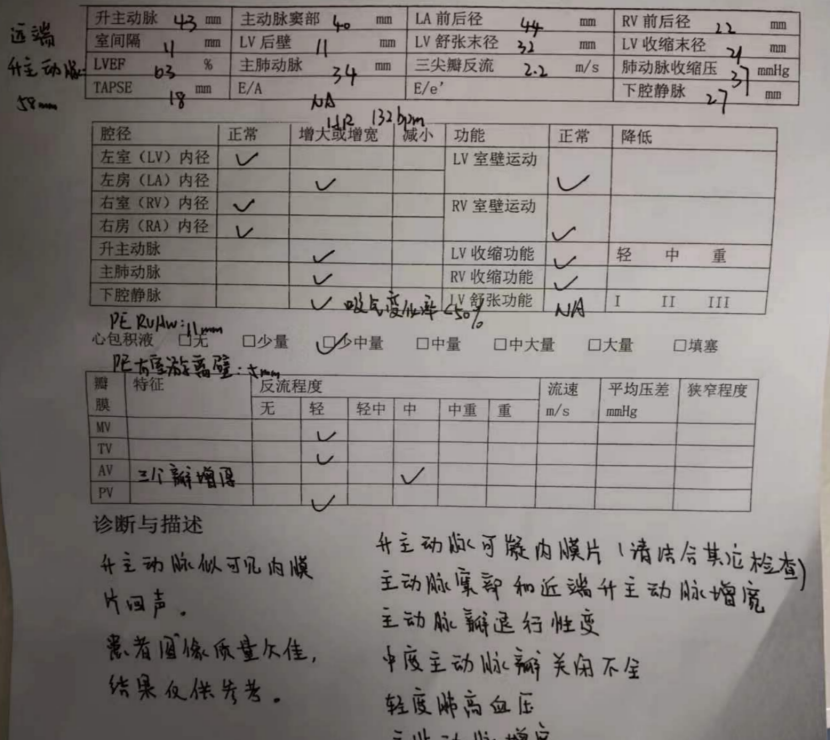 升主动脉 43 mm 主动脉窦部 40 mm LA 前后径 44 mm RV 前后径 22 mm
远端
室间隔 11 mm LV 后壁 11 mm LV 舒张末径 32 mm LV 收缩末径 21 mm
升主动脉:
LVEF 63 % 主肺动脉 34 mm 三尖瓣反流 2.2 m/s 肺动脉收缩压 37 mmHg
58mm
TAPSE 18 mm E/A NA E/e' 下腔静脉 27 mm
HR 132bpm
腔径 正常 增大或增宽 减小 功能 正常 降低
左室（LV）内径 ✓ LV 室壁运动 ✓
左房（LA）内径 ✓
右室（RV）内径 ✓ RV 室壁运动 ✓
右房（RA）内径 ✓
升主动脉 ✓ LV 收缩功能 ✓ 轻 中 重
主肺动脉 ✓ RV 收缩功能 ✓
下腔静脉 ✓ 吸气变化率<50% LV 舒张功能 NA I II III
PE RVAW:11mm
心包积液 □无 □少量 ☑少中量 □中量 □中大量 □大量 □填塞
PE右室游离壁:
瓣膜 特征 反流程度 流速 m/s 平均压差 mmHg 狭窄程度
无 轻 轻中 中 中重 重
MV ✓
TV ✓
AV 三个瓣增厚 ✓
PV ✓
诊断与描述
升主动脉似可见内膜
片回声。
患者图像质量欠佳,
结果仅供参考。
升主动脉可疑内膜片(请结合其它检查)
主动脉窦部和近端升主动脉增宽
主动脉瓣退行性变
中度主动脉瓣关闭不全
轻度肺高血压
主肺动脉增宽